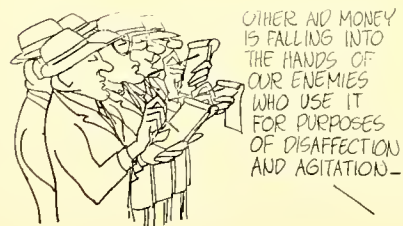 OTHER AID MONEY
IS FALLING INTO
THE HANDS OF
OUR ENEMIES
WHO USE IT
FOR PURPOSES
OF DISAFFECTION
AND AGITATION—